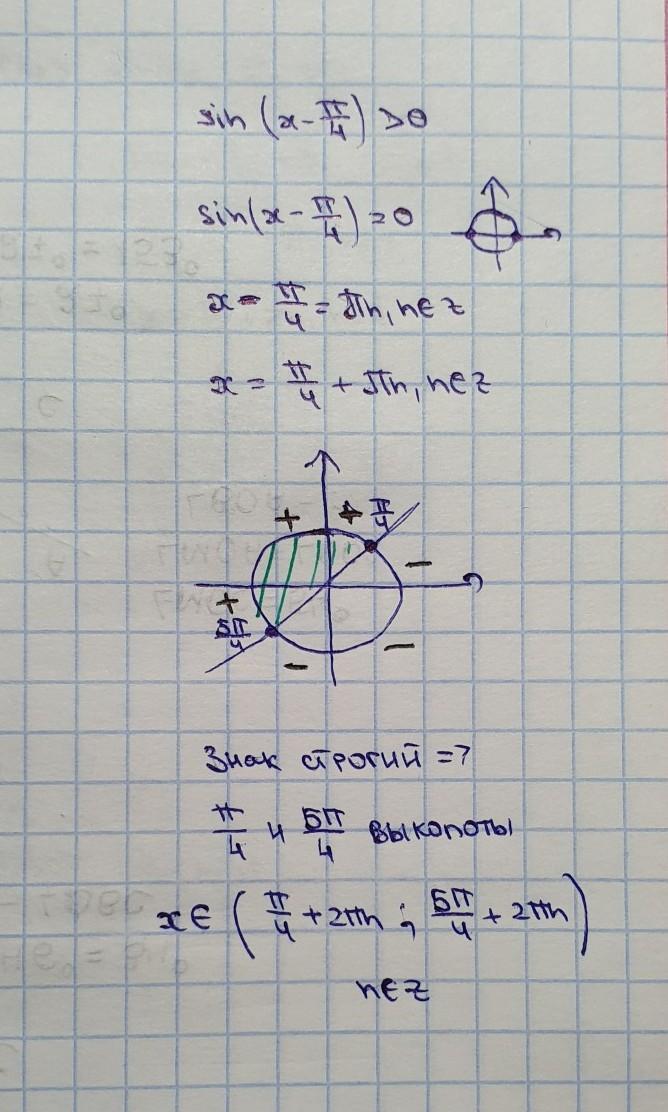 sin (x - π/4) > 0
sin(x - π/4) = 0
x - π/4 = πn, n∈z
x = π/4 + πn, n∈z
+ + π/4
−
+
5π/4
− −
Знак строгий =>
π/4 и 5π/4 выколоты
x∈ (π/4 + 2πn ; 5π/4 + 2πn)
n∈z